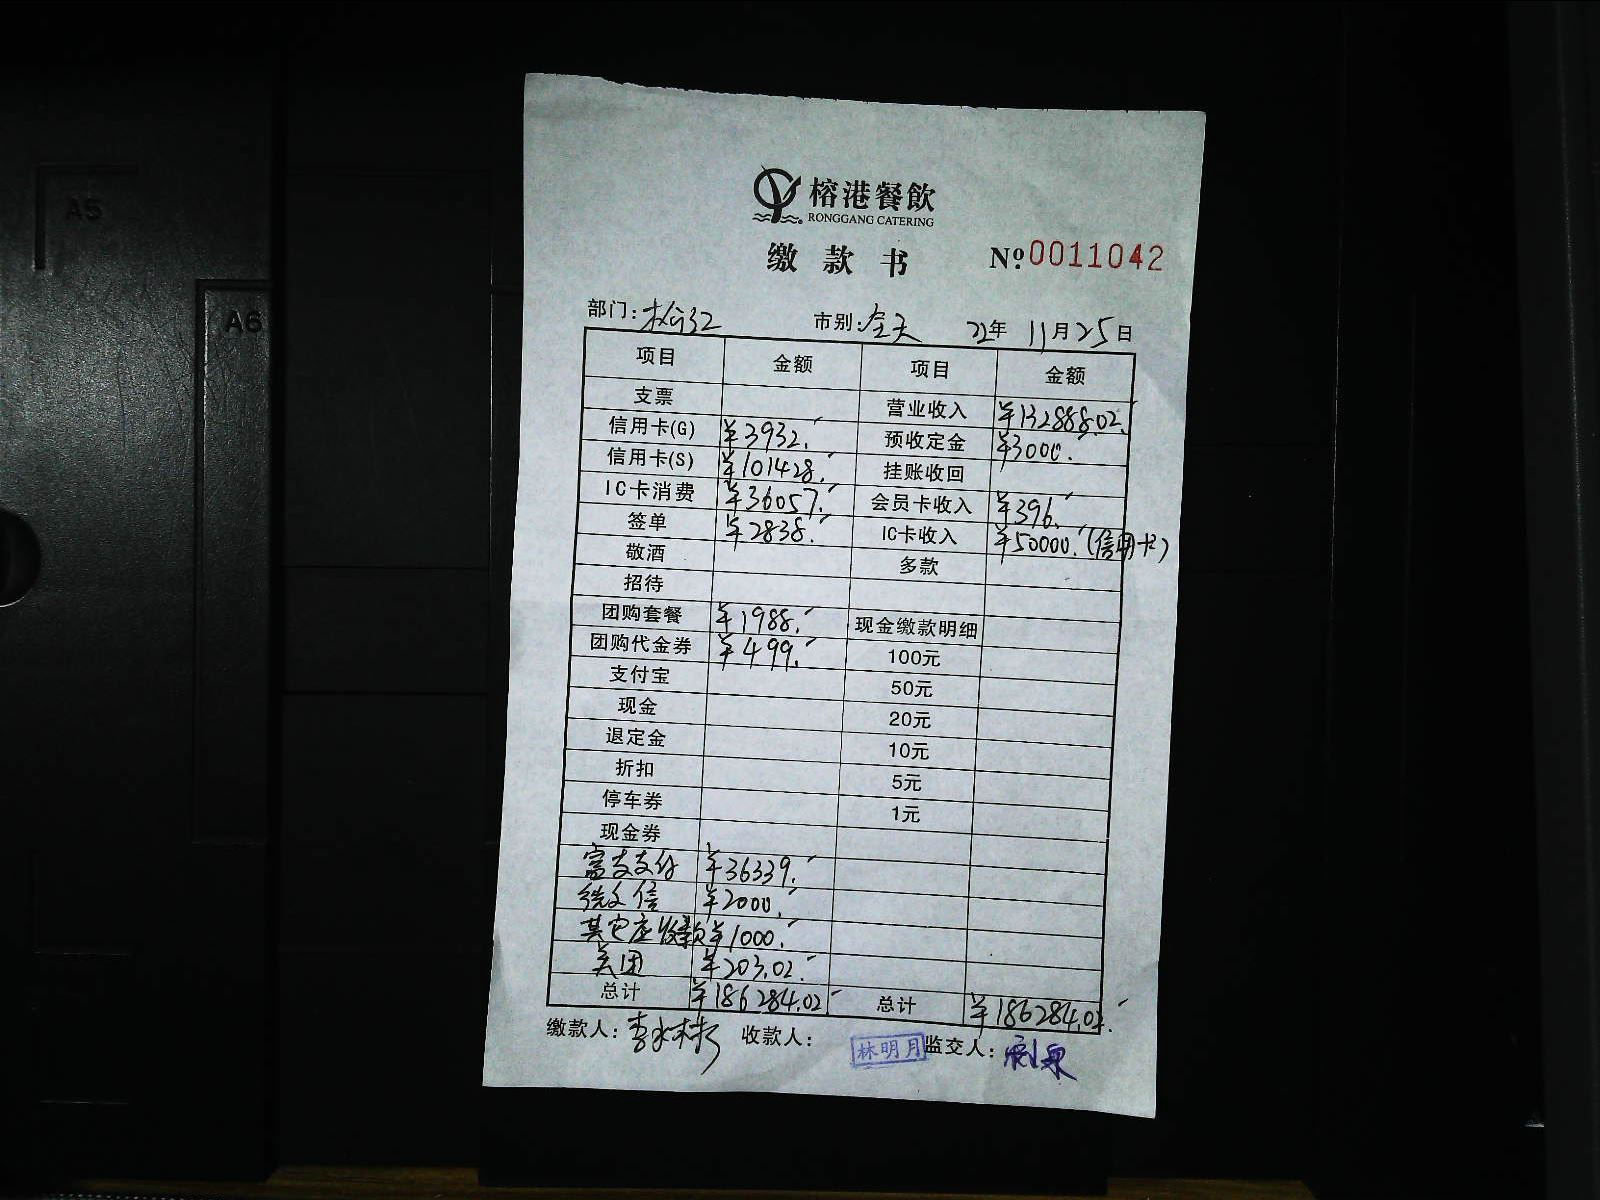 A5
A6
榕港餐飲
RONGGANG CATERING
缴款书 № 0011042
部门: 市别:全天 22年 11月25日
项目 金额 项目 金额
支票 营业收入 ¥132888.02
信用卡(G) ¥3932. 预收定金 ¥3000.
信用卡(S) ¥101428. 挂账收回
IC卡消费 ¥36057. 会员卡收入 ¥396.
签单 ¥2838. IC卡收入 ¥50000.(信用卡)
敬酒 多款
招待
团购套餐 ¥1988. 现金缴款明细
团购代金券 ¥499. 100元
支付宝 50元
现金 20元
退定金 10元
折扣 5元
停车券 1元
现金券
富友支付 ¥36339.
微信 ¥2000.
其它应收款 ¥1000.
美团 ¥203.02.
总计 ¥186284.02 总计 ¥186284.02.
缴款人: 收款人: 林明月 监交人: